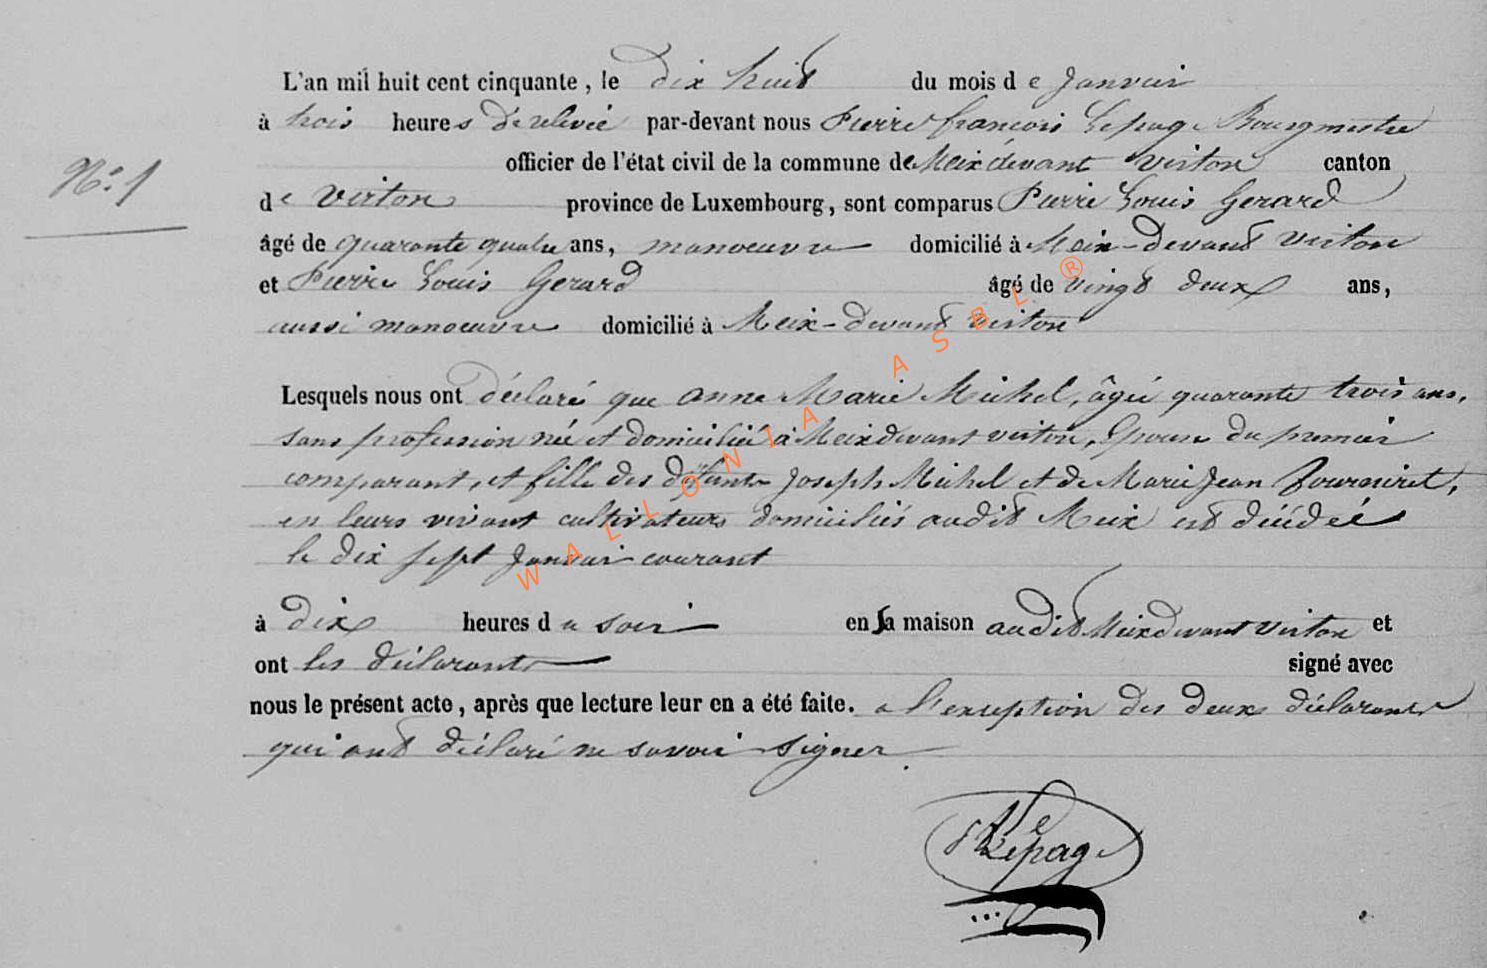 L'an mil huit cent cinquante, le dix huit du mois de Janvier
à trois heures de relevée par-devant nous Pierre françois Lepage Bourgmestre
officier de l'état civil de la commune de Meix devant virton canton
N.° 1
de virton province de Luxembourg, sont comparus Pierre Louis Gerard
âgé de quarante quatre ans, manoeuvre domicilié à Meix-devant virton
et Pierre Louis Gerard âgé de vingt deux ans,
aussi manoeuvre domicilié à Meix-devant virton
Lesquels nous ont déclaré que anne Marie Michel, âgée quarante trois ans,
sans profession née et domiciliée à Meix devant virton, Epouse du premier
comparant, et fille des défunts Joseph Michel et de Marie Jean Fourniret,
en leurs vivant cultivateurs domiciliés audit Meix est décédée
le dix sept Janvier courant
à dix heures du soir en sa maison audit Meix devant virton et
ont les déclarants signé avec
nous le présent acte, après que lecture leur en a été faite. a l'exception des deux déclarants
qui ont déclaré ne savoir signer
Lepage
WALLONIA ASBL ®